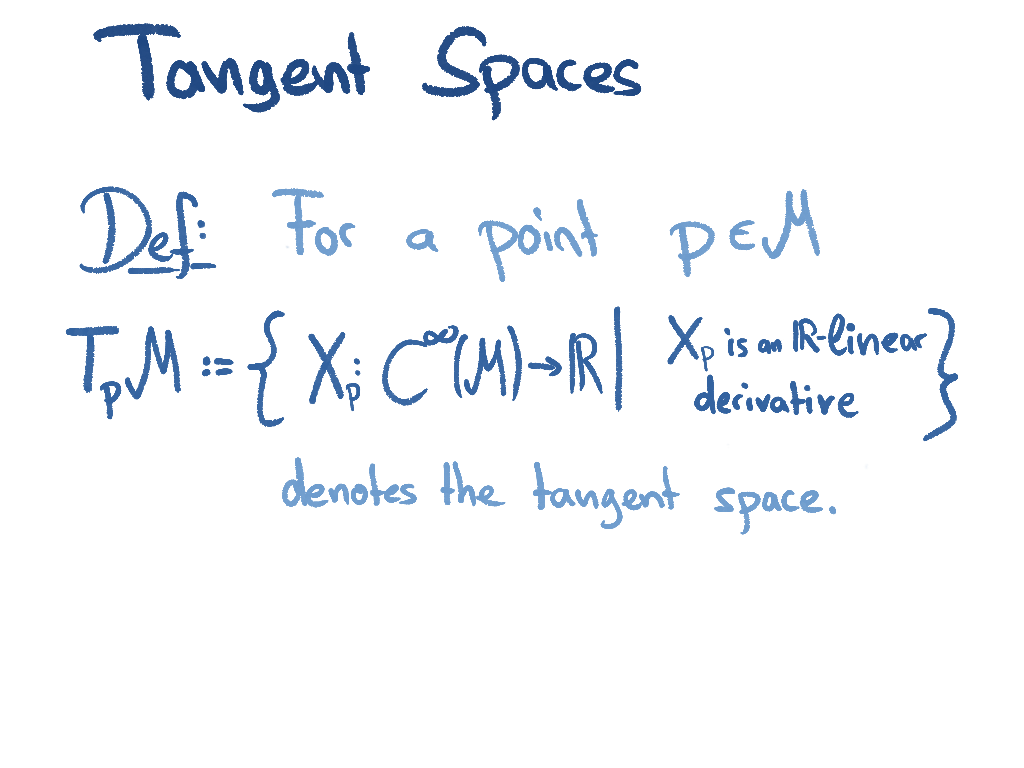 Tangent Spaces
Def: For a point p∈M
TₚM := { Xₚ: C^∞(M)→ℝ | Xₚ is an ℝ-linear derivative }
denotes the tangent space.